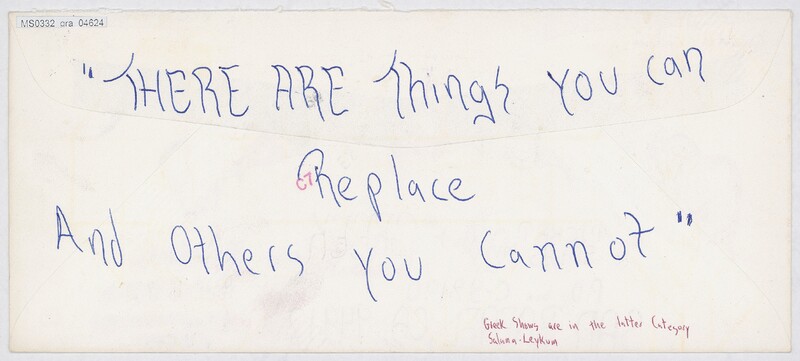 MS0332 ora 04624
"THERE ARE Things You can
Replace
C7
And Others You Cannot"
Greek Shows are in the latter Category
Saluna-Leykum